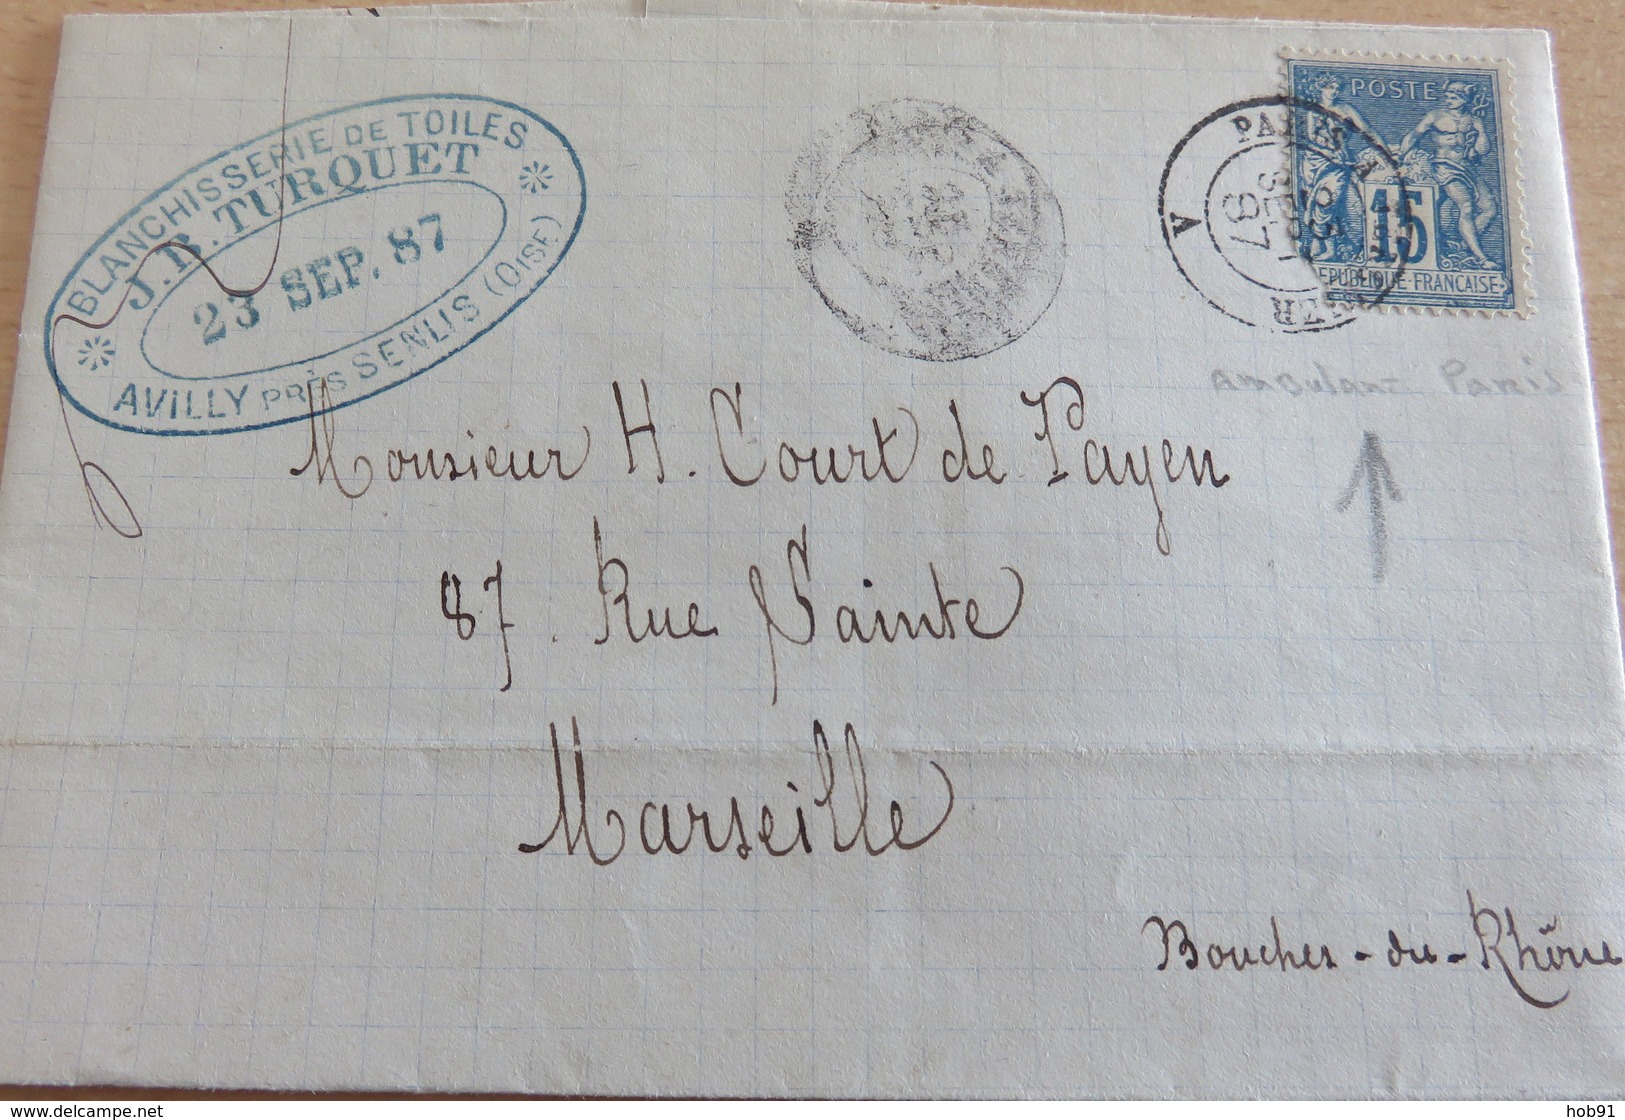 BLANCHISSERIE DE TOILES
J. B. TURQUET
23 SEP. 87
AVILLY PRÈS SENLIS (OISE)
POSTE
15
REPUBLIQUE FRANCAISE
PARIS A
87
A
ambulant Paris
Monsieur H. Court de Payen
87. Rue Sainte
Marseille
Bouches-du-Rhône
delcampe.net
hob91